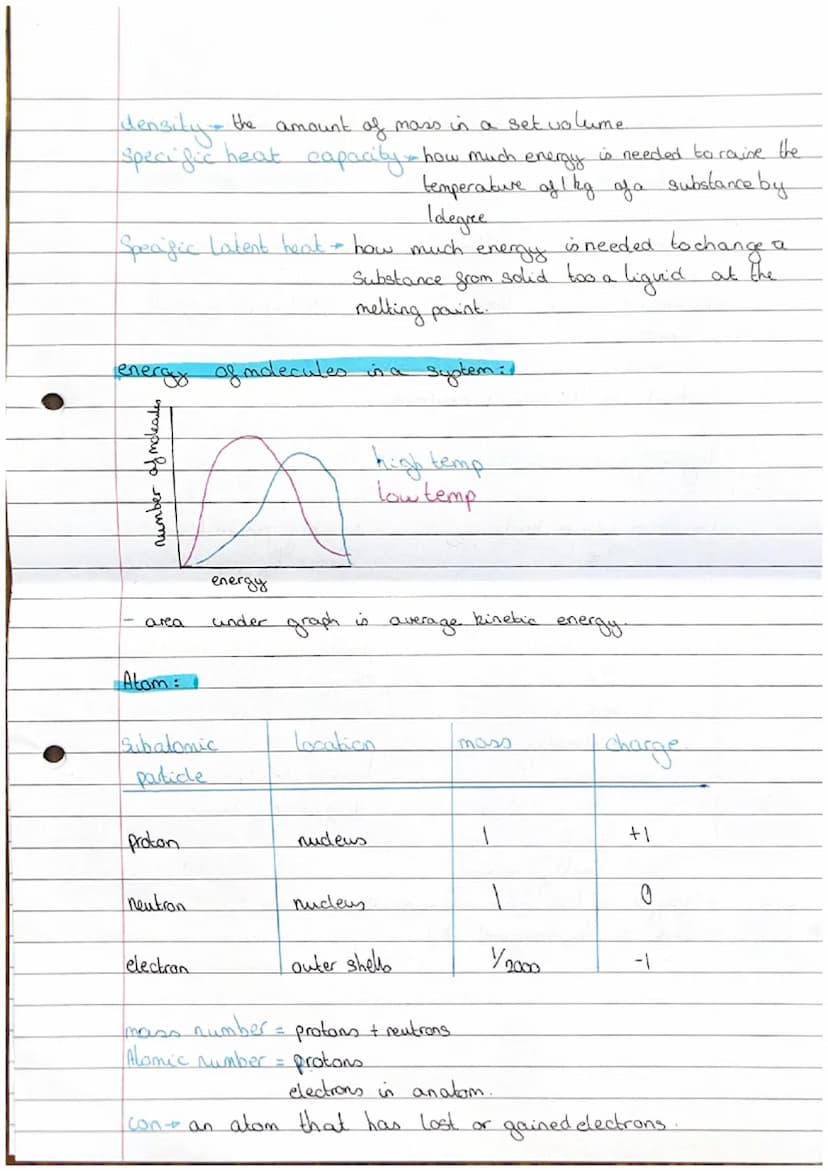 density → the amount of mass in a set volume
specific heat capacity → how much energy is needed to raise the
temperature of 1 kg of a substance by
1 degree
Specific Latent heat → how much energy is needed to change a
substance from solid too a liquid at the
melting point.
energy of molecules in a system:
number of molecules
high temp
low temp
energy
- area under graph is average kinetic energy.
Atom:
Subatomic location mass charge
particle
proton nucleus 1 +1
neutron nucleus 1 0
electron outer shells 1/2000 -1
mass number = protons + neutrons
Atomic number = protons
electrons in an atom.
ion → an atom that has lost or gained electrons.